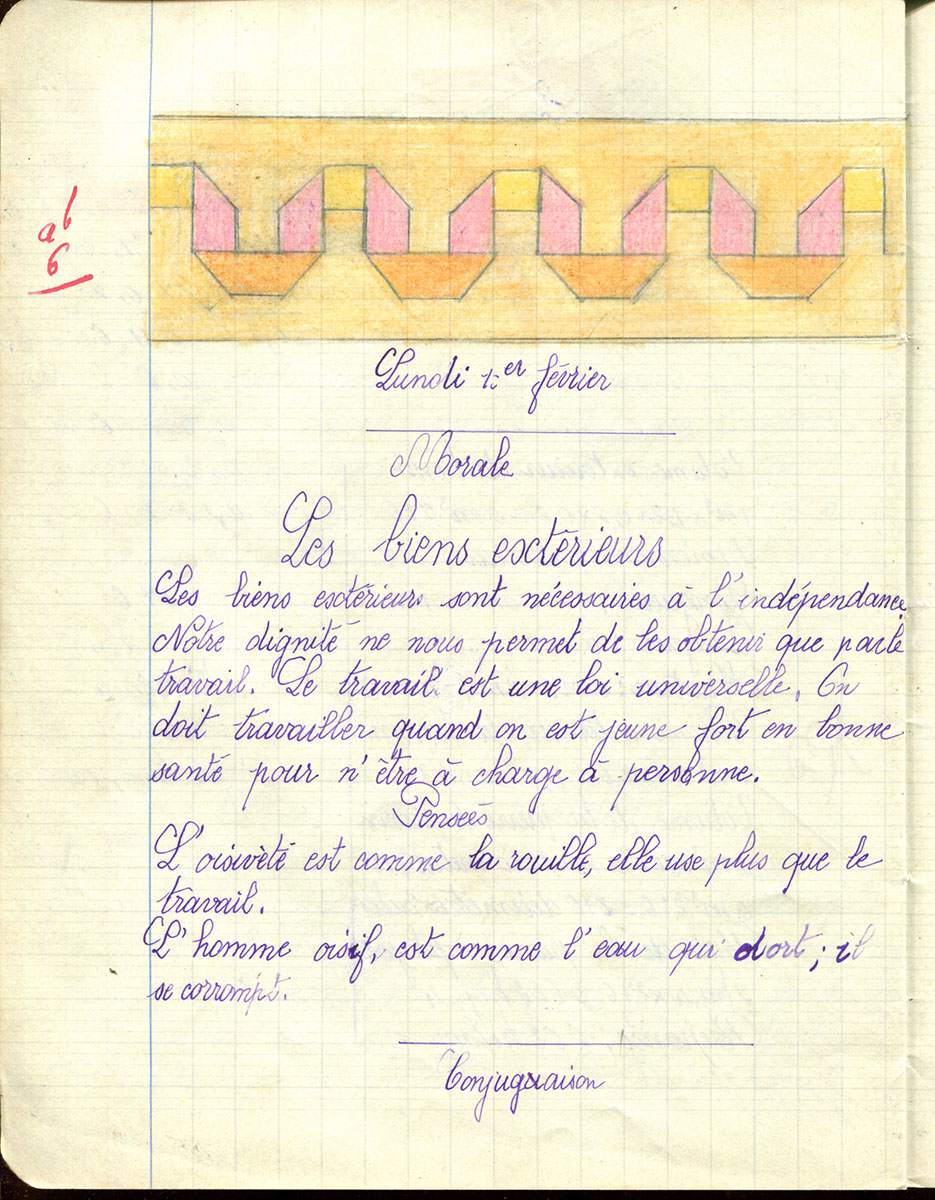 ab
6
Lundi 1er février
Morale
Les biens extérieurs
Les biens extérieurs sont nécessaires à l'indépendance.
Notre dignité ne nous permet de les obtenir que par le
travail. Le travail est une loi universelle. On
doit travailler quand on est jeune fort en bonne
santé pour n'être à charge à personne.
Penseés
L'oisivèté est comme la rouille, elle use plus que le
travail.
L'homme oisif, est comme l'eau qui dort ; il
se corrompt.
Conjuguaison